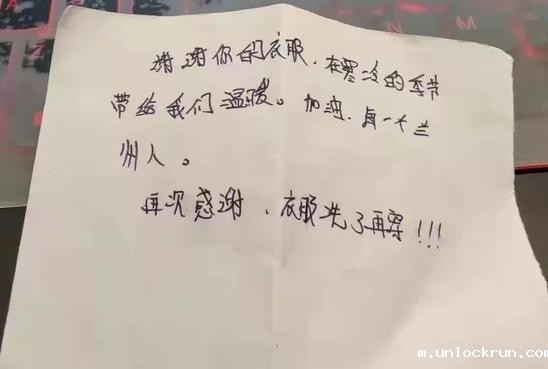 谢谢你的衣服.在寒冷的季节
带给我们温暖。加油.每一个兰
州人。
再次感谢.衣服洗了再穿!!!
m.unlockrun.com